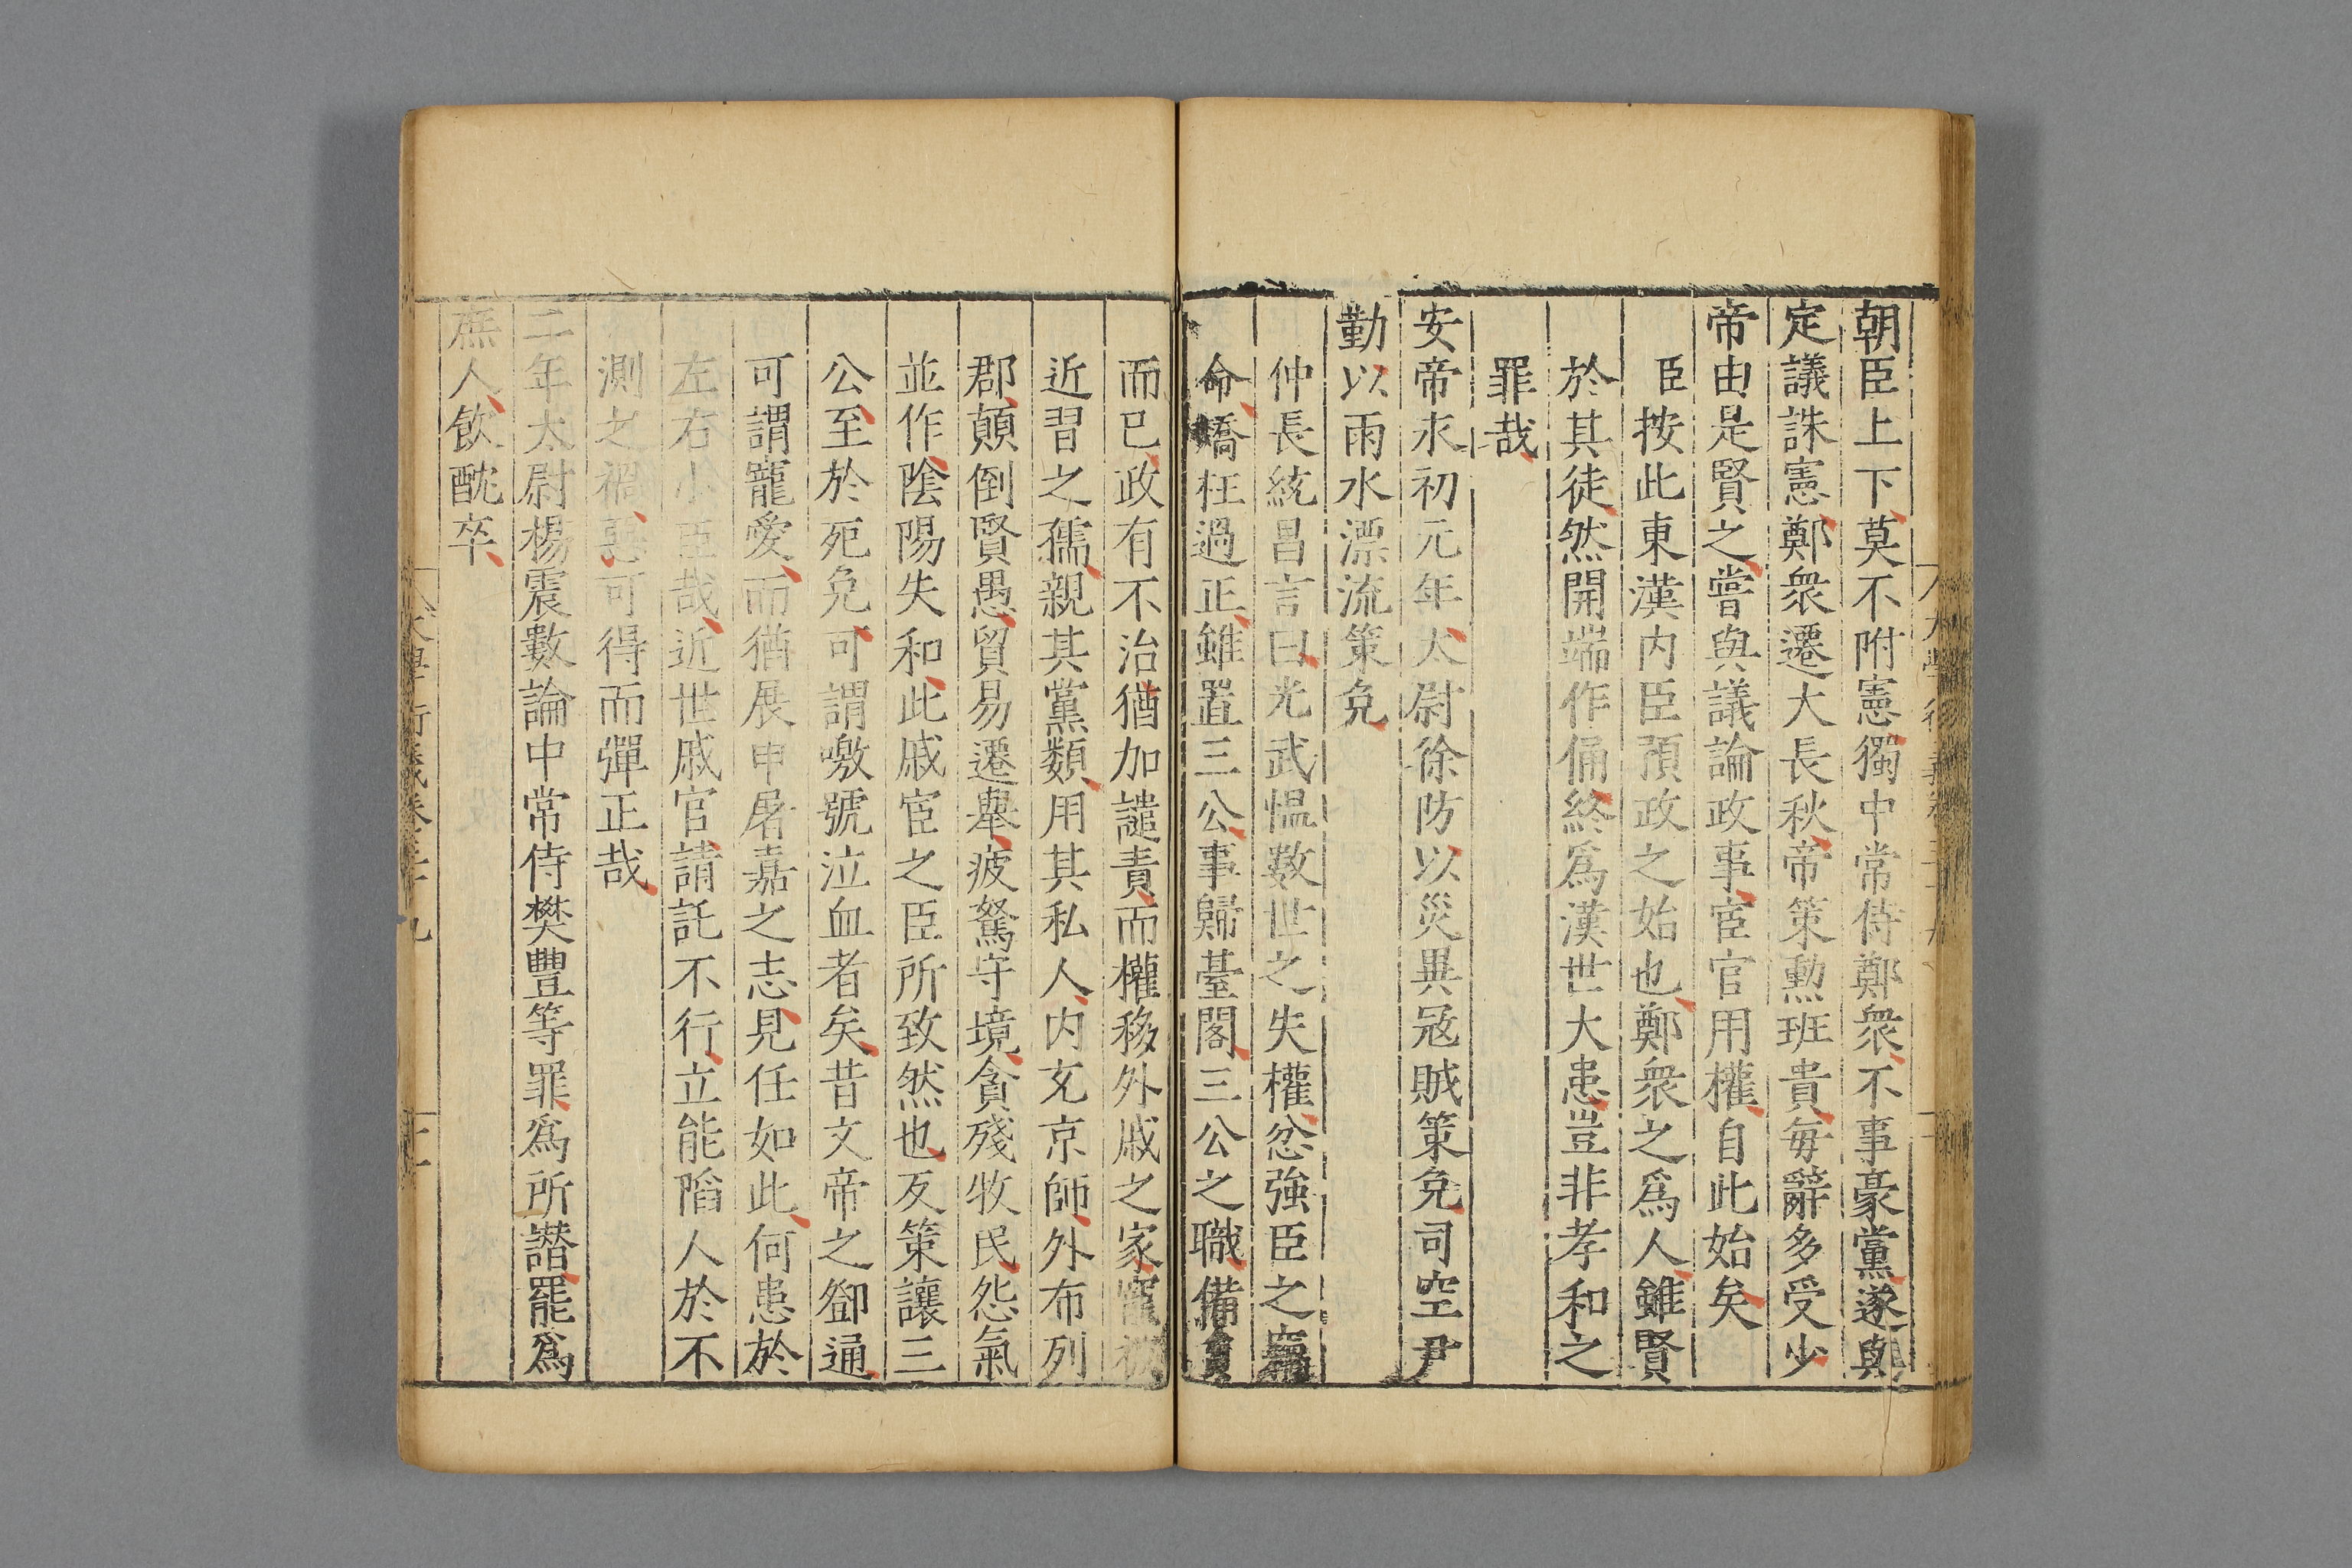 朝臣上下莫不附憲獨中常侍鄭衆不事豪黨遂與
定議誅憲鄭衆遷大長秋帝策勲班貴每辭多受少
帝由是賢之嘗與議論政事宦官用權自此始矣
臣按此東漢内臣預政之始也鄭衆之爲人雖賢
於其徒然開端作俑終爲漢世大患豈非孝和之
罪哉
安帝永初元年太尉徐防以災異冦賊策免司空尹
勤以雨水漂流策免
仲長統昌言曰光武愠数世之失權忿強臣之竊
命矯枉過正雖置三公事歸臺閣三公之職備員
而已政有不治猶加譴責而權移外戚之家寵被
近習之孺親其黨類用其私人内充京師外布列
郡顛倒賢愚貿易遷舉疲駑守境貪殘牧民怨氣
並作陰陽失和此戚宦之臣所致然也反策讓三
公至於死免可謂噭號泣血者矣昔文帝之鄧通
可謂寵愛而猶展申屠嘉之志見任如此何患於
左右小臣哉近世戚官請託不行立能陷人於不
測之禍惡可得而彈正哉
二年太尉楊震數論中常侍樊豐等罪爲所譖罷爲
庶人飲酖卒
大學衍義卷三十九
十一